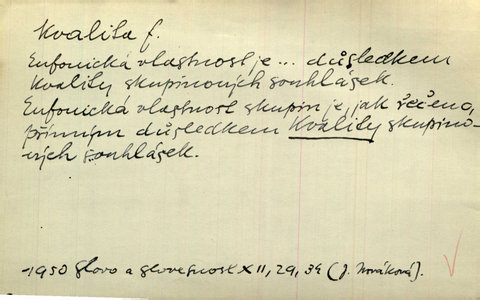 Kvalita f.
Eufonická vlastnost je ... důsledkem
kvality skupinových souhlásek.
Eufonická vlastnost skupin je, jak řečeno,
přímým důsledkem kvality skupino-
vých souhlásek.
-1950 Slovo a slovesnost XII, 29, 34 (J. Nováková).